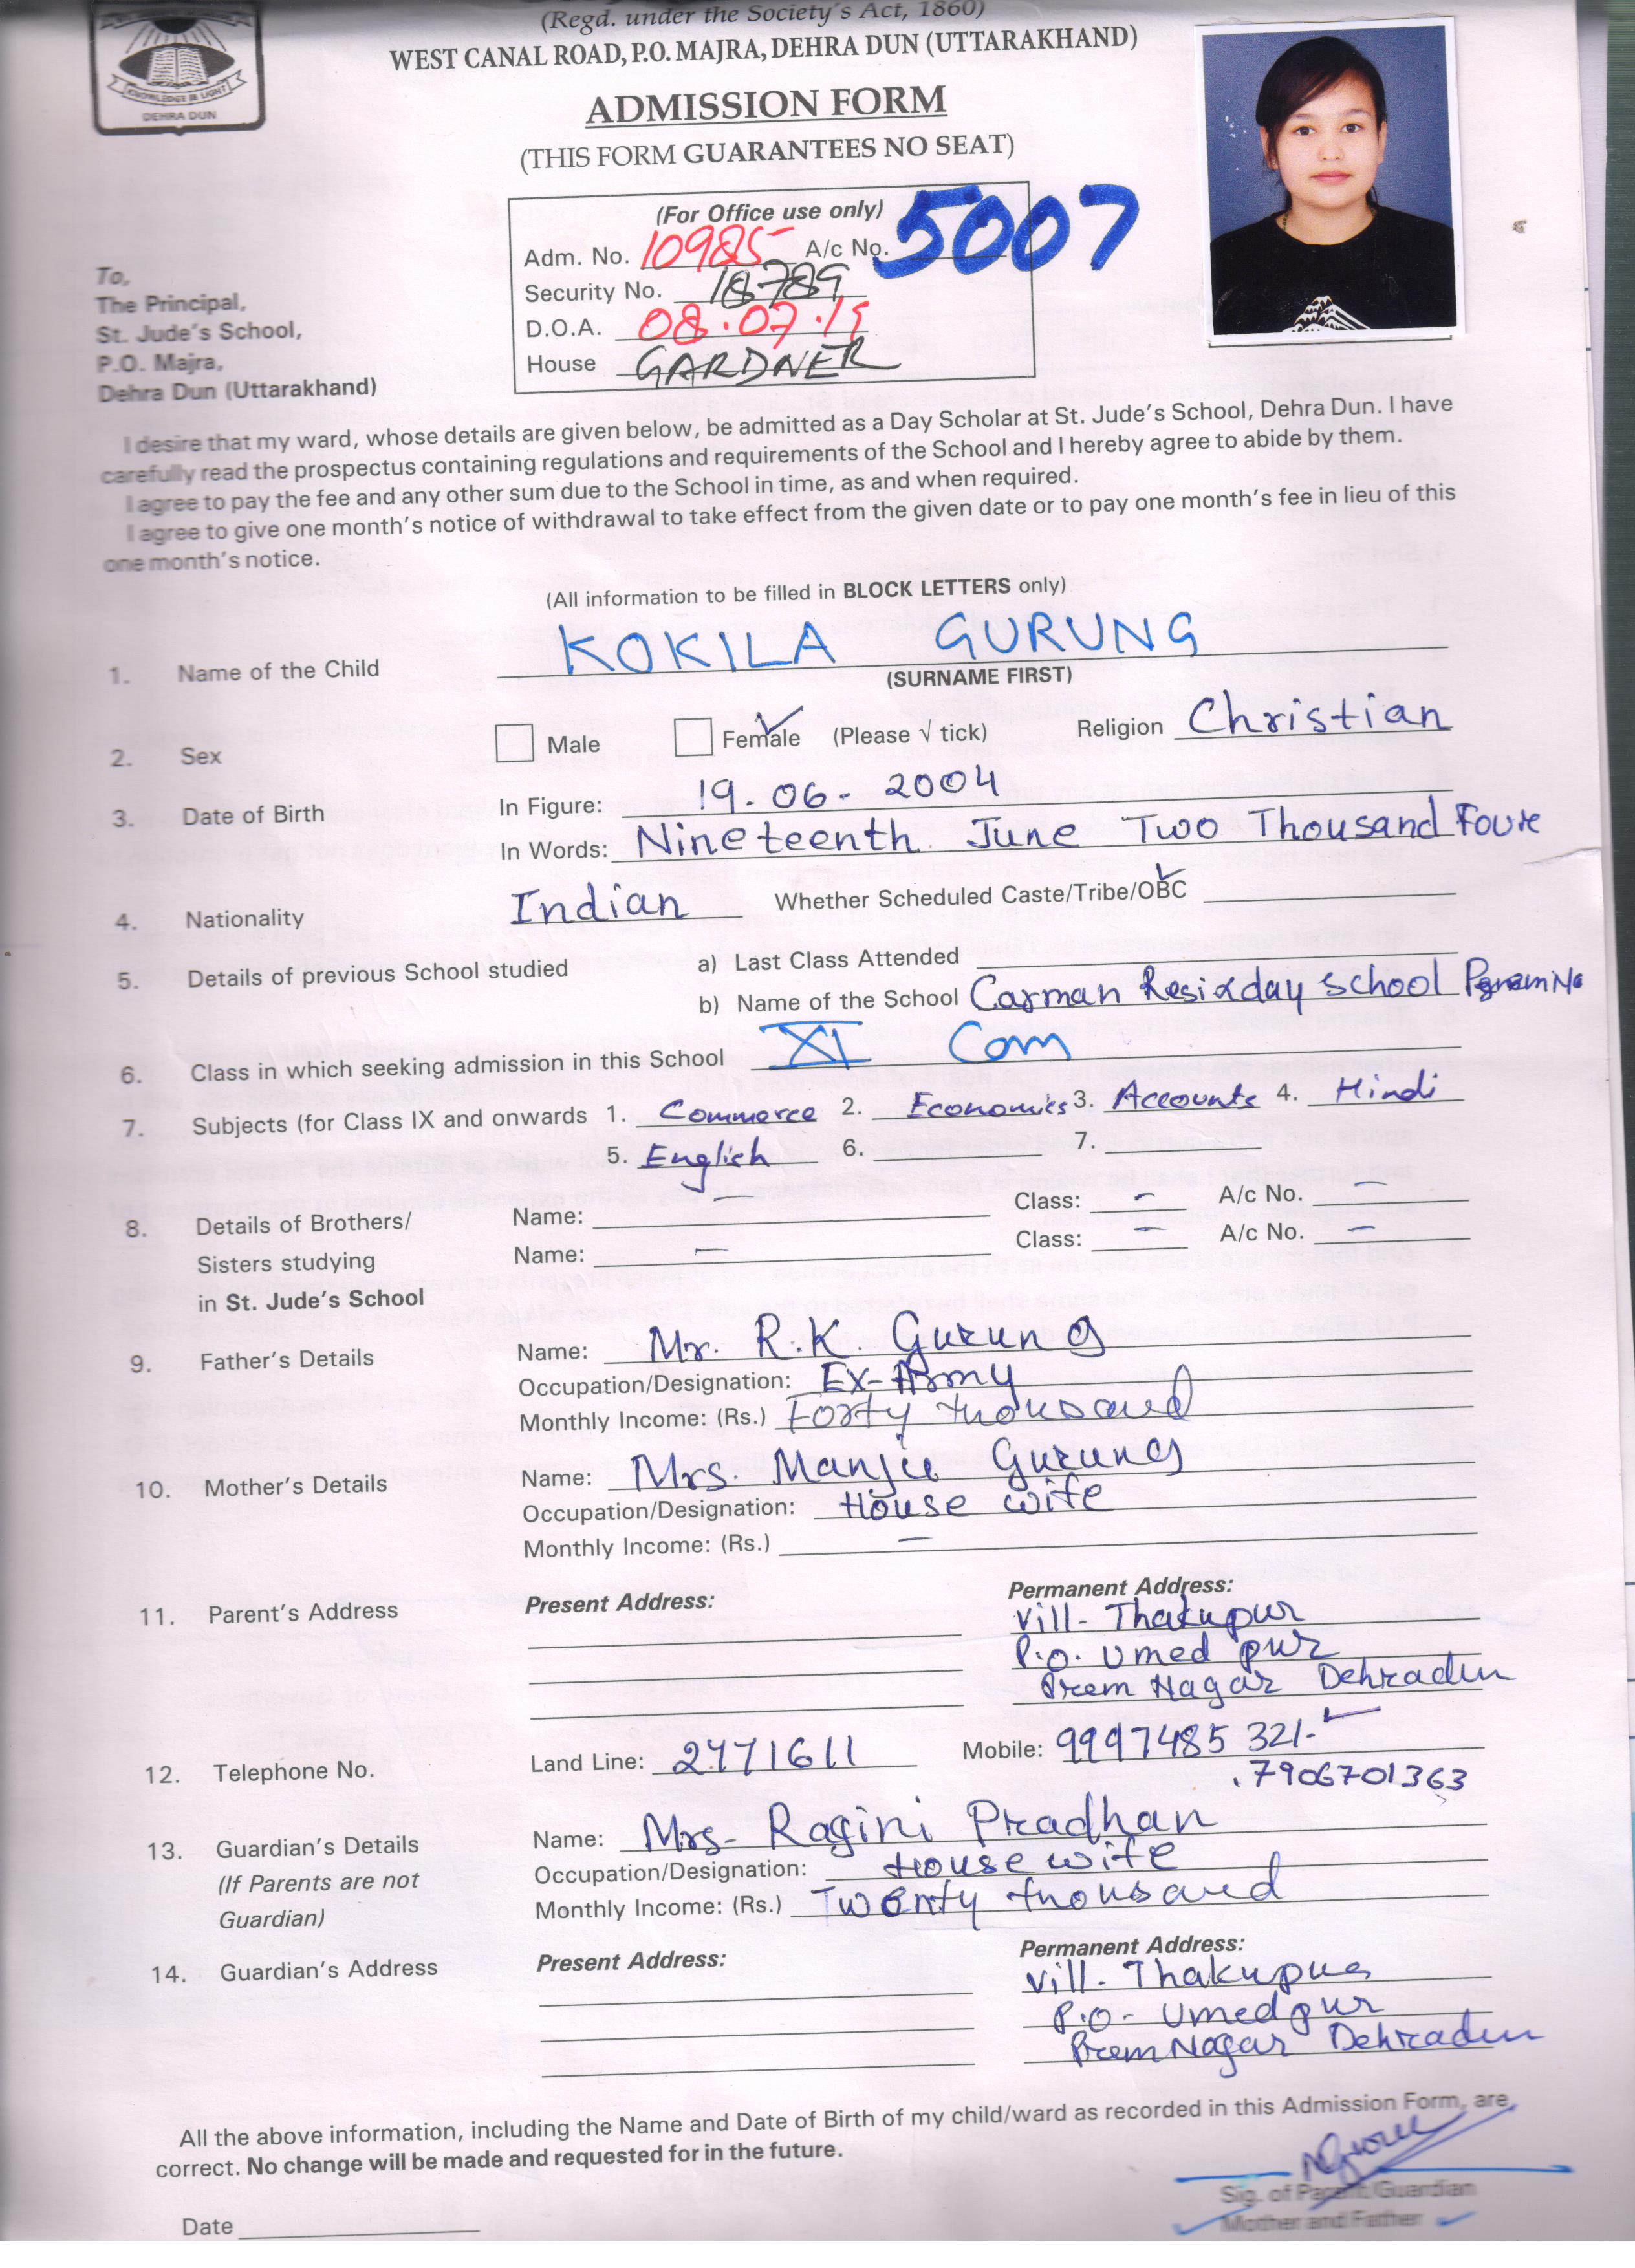 (Regd. under the Society's Act, 1860)
WEST CANAL ROAD, P.O. MAJRA, DEHRA DUN (UTTARAKHAND)
KNOWLEDGE IS LIGHT
DEHRA DUN
ADMISSION FORM
(THIS FORM GUARANTEES NO SEAT)
(For Office use only)
Adm. No. 10985 A/c No. 5007
Security No. 18789
D.O.A. 08.07.19
House GARDNER
To,
The Principal,
St. Jude's School,
P.O. Majra,
Dehra Dun (Uttarakhand)
I desire that my ward, whose details are given below, be admitted as a Day Scholar at St. Jude's School, Dehra Dun. I have
carefully read the prospectus containing regulations and requirements of the School and I hereby agree to abide by them.
I agree to pay the fee and any other sum due to the School in time, as and when required.
I agree to give one month's notice of withdrawal to take effect from the given date or to pay one month's fee in lieu of this
one month's notice.
(All information to be filled in BLOCK LETTERS only)
1. Name of the Child KOKILA GURUNG
(SURNAME FIRST)
2. Sex Male Female ✓ (Please √ tick) Religion Christian
3. Date of Birth In Figure: 19-06-2004
In Words: Nineteenth June Two Thousand Foure
4. Nationality Indian Whether Scheduled Caste/Tribe/OBC ✓
5. Details of previous School studied a) Last Class Attended
b) Name of the School Carman Resi & day school
6. Class in which seeking admission in this School XI Com
7. Subjects (for Class IX and onwards 1. Commerce 2. Economics 3. Accounts 4. Hindi
5. English 6. 7.
8. Details of Brothers/ Name: — Class: — A/c No. —
Sisters studying Name: — Class: — A/c No. —
in St. Jude's School
9. Father's Details Name: Mr. R.K. Gurung
Occupation/Designation: Ex-Army
Monthly Income: (Rs.) Forty thousand
10. Mother's Details Name: Mrs. Manju Gurung
Occupation/Designation: House wife
Monthly Income: (Rs.) —
11. Parent's Address Present Address: Permanent Address:
Vill- Thakupur
P.O. Umed pur
Prem Nagar Dehradun
12. Telephone No. Land Line: 2771611 Mobile: 9997485321- ✓
7906701363
13. Guardian's Details Name: Mrs- Ragini Pradhan
(If Parents are not Occupation/Designation: House wife
Guardian) Monthly Income: (Rs.) Twenty thousand
14. Guardian's Address Present Address: Permanent Address:
Vill- Thakupur
P.O- Umedpur
Prem Nagar Dehradun
All the above information, including the Name and Date of Birth of my child/ward as recorded in this Admission Form, are
correct. No change will be made and requested for in the future.
Sig. of Parent/Guardian
Mother and Father
Date